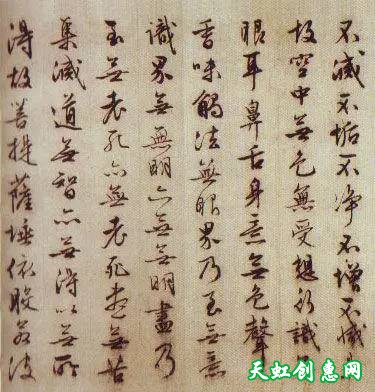 不滅不垢不净不增不減是
故空中無色無受想行識無
眼耳鼻舌身意無色聲
香味觸法無眼界乃至無意
識界無無明亦無無明盡乃
至無老死亦無老死盡無苦
集滅道無智亦無得以無所
得故菩提薩埵依般若波
天虹创惠网